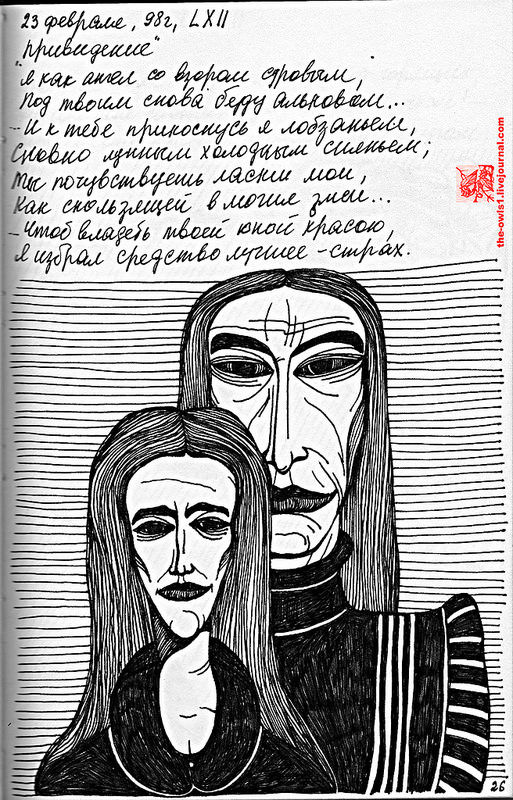 23 февраля, 98г, LXII
"Привидение"
"Я как ангел со взором суровым,
Под твоим снова буду альковом...
– И к тебе прикоснусь я лобзаньем,
Словно лунным холодным сияньем;
Ты почувствуешь ласки мои,
Как скользящей в могиле змеи...
– Чтоб владеть твоей юной красою,
Я избрал средство лучшее – страх.
the-owls1.livejournal.com
26